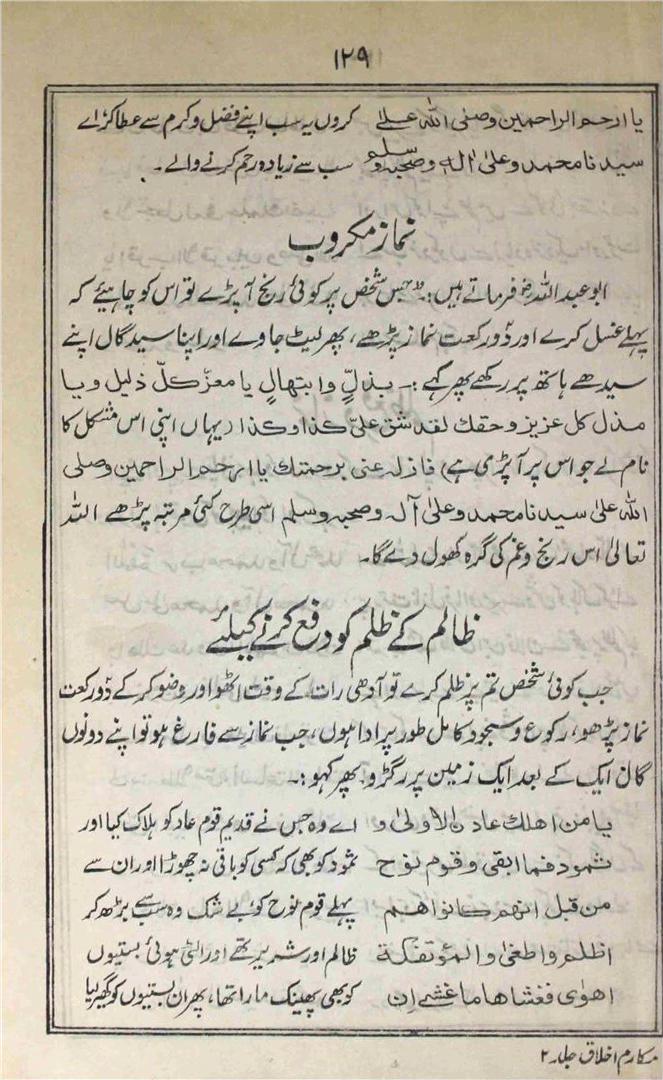 ۱۲۹
یا ارحم الراحمین وصلی اللہ علے کروں یہ سب اپنے فضل و کرم سے عطا کر اے
سیدنا محمد وعلیٰ آلہ وصحبہ وسلم سب سے زیادہ رحم کرنے والے۔
نماز مکروب
ابو عبد اللہؑ فرماتے ہیں:۔ جس شخص پر کوئی رنج آ پڑے تو اس کو چاہیئے کہ
پہلے غسل کرے اور دو رکعت نماز پڑھے، پھر لیٹ جاوے اور اپنا سیدھا گال اپنے
سیدھے ہاتھ پر رکھے پھر کہے:۔ بذلٍّ وابتھالٍ یا معزّ کلّ ذلیل ویا
مذل کل عزیز وحقک لقد شق علیّ کذا وکذا (یہاں اپنی اس مشکل کا
نام لے جو اس پر آ پڑی ہے) فازلہ عنی برحمتک یا ارحم الراحمین وصلی
اللہ علیٰ سیدنا محمد وعلیٰ آلہ وصحبہ وسلم اسی طرح کئی مرتبہ پڑھے اللہ
تعالیٰ اس رنج و غم کی گرہ کھول دے گا۔
ظالم کے ظلم کو دفع کرنے کیلئے
جب کوئی شخص تم پر ظلم کرے تو آدھی رات کے وقت اٹھو اور وضو کر کے دو رکعت
نماز پڑھو، رکوع و سجود کامل طور پر ادا ہوں، جب نماز سے فارغ ہو تو اپنے دونوں
گال ایک کے بعد ایک زمین پر رگڑو پھر کہو:۔
یا من اھلک عاد ن الاولیٰ و اے وہ جس نے قدیم قوم عاد کو ہلاک کیا اور
ثمود فما ابقی وقوم نوح ثمود کو بھی کہ کسی کو باقی نہ چھوڑا اور ان سے
من قبل انھم کانوا ھم پہلے قوم نوح کو بے شک وہ سب سے بڑھ کر
اظلم واطغیٰ والمؤتفکۃ ظالم اور شریر تھے اور الٹی ہوئی بستیوں
اھویٰ فغشاھا ما غشیٰ ان کو بھی پھینک مارا تھا، پھر ان بستیوں کو گھیر لیا
مکارم اخلاق جلد ۲